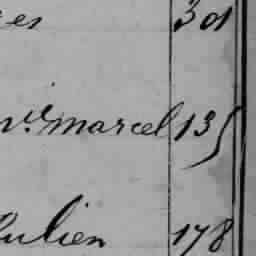 es 301
ve. marcel 135
Julien 178